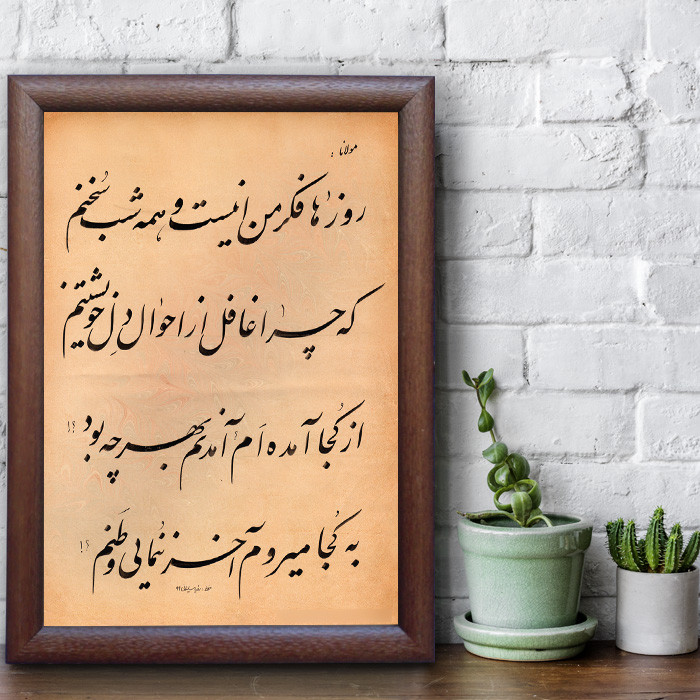 مولانا :
روزها فکر من اینست و همه شب سخنم
که چرا غافل از احوال دل خویشتنم
از کجا آمده‌ام آمدنم بهر چه بود ؟!
به کجا میروم آخر ننمایی وطنم ؟!